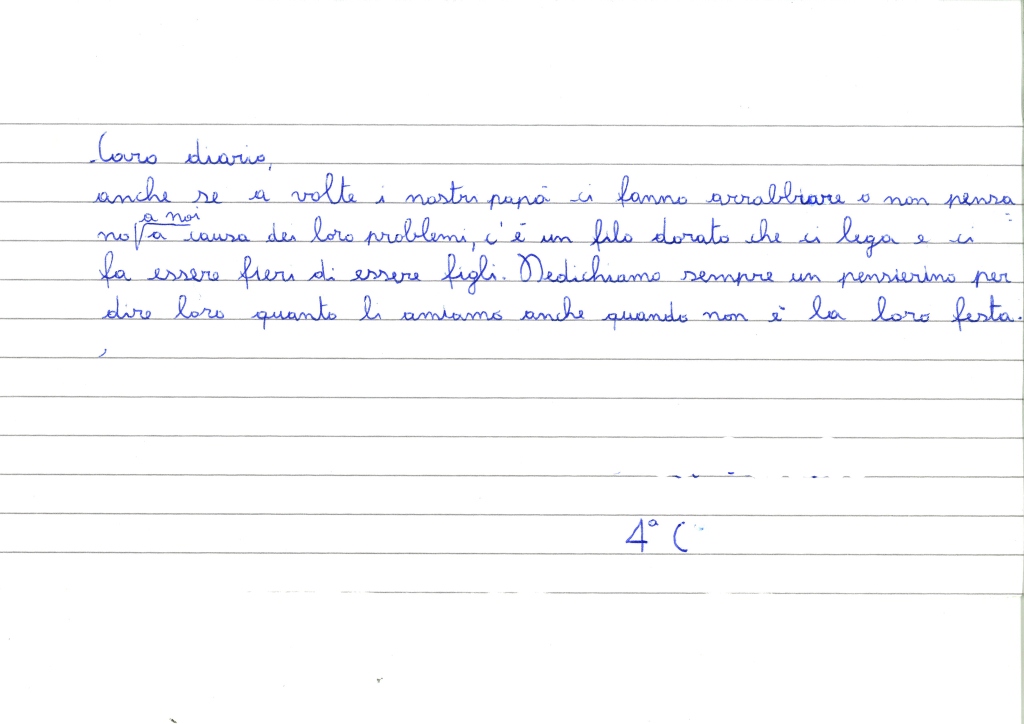 Caro diario,
anche se a volte i nostri papà ci fanno arrabbiare o non pensa
no a noi a causa dei loro problemi, c'è un filo dorato che ci lega e ci
fa essere fieri di essere figli. Dedichiamo sempre un pensierino per
dire loro quanto li amiamo anche quando non è la loro festa.
4ª C